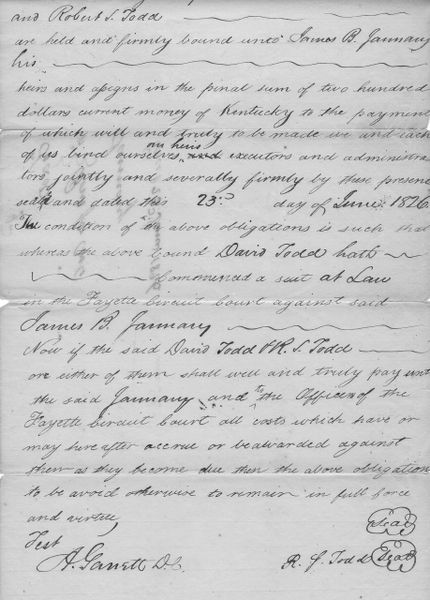 and Robert S. Todd
are held and firmly bound unto James B. January
his
heirs and assigns in the pinal sum of two hundred
dollars current money of Kentucky to the payment
of which will and truly to be made we and each
of us bind ourselves, our heirs executors and administra
tors jointly and severally firmly by these present
seald and dated this 23d day of June 1826
The condition of the above obligations is such that
whereas the above bound David Todd hath
Commenced a suit at Law
in the Fayette Circuit Court against said
James B. January
Now if the said David Todd & R. S. Todd
ore either of them shall well and truly pay unto
the said January and to the Officers of the
Fayette Circuit Court all costs which have or
may hereafter accrue or be awarded against
them as they become due then the above obligation
to be avoid otherwise to remain in full force
and virtue,
Test
A. Garrett D.C.
Seal
R. S. Todd Seal